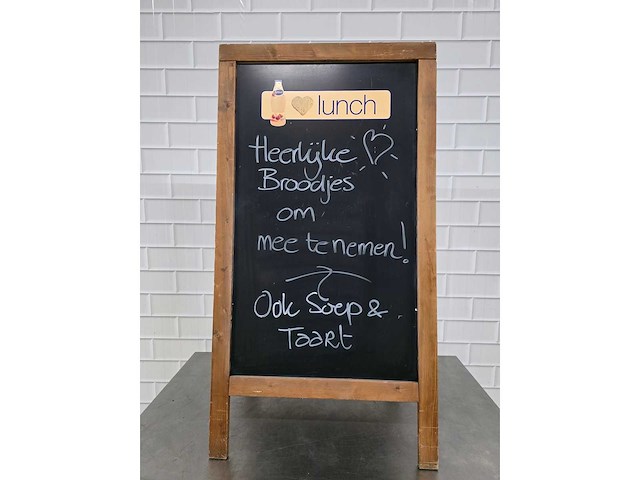 lunch
Heerlijke
Broodjes
om
mee te nemen!
Ook Soep &
Taart